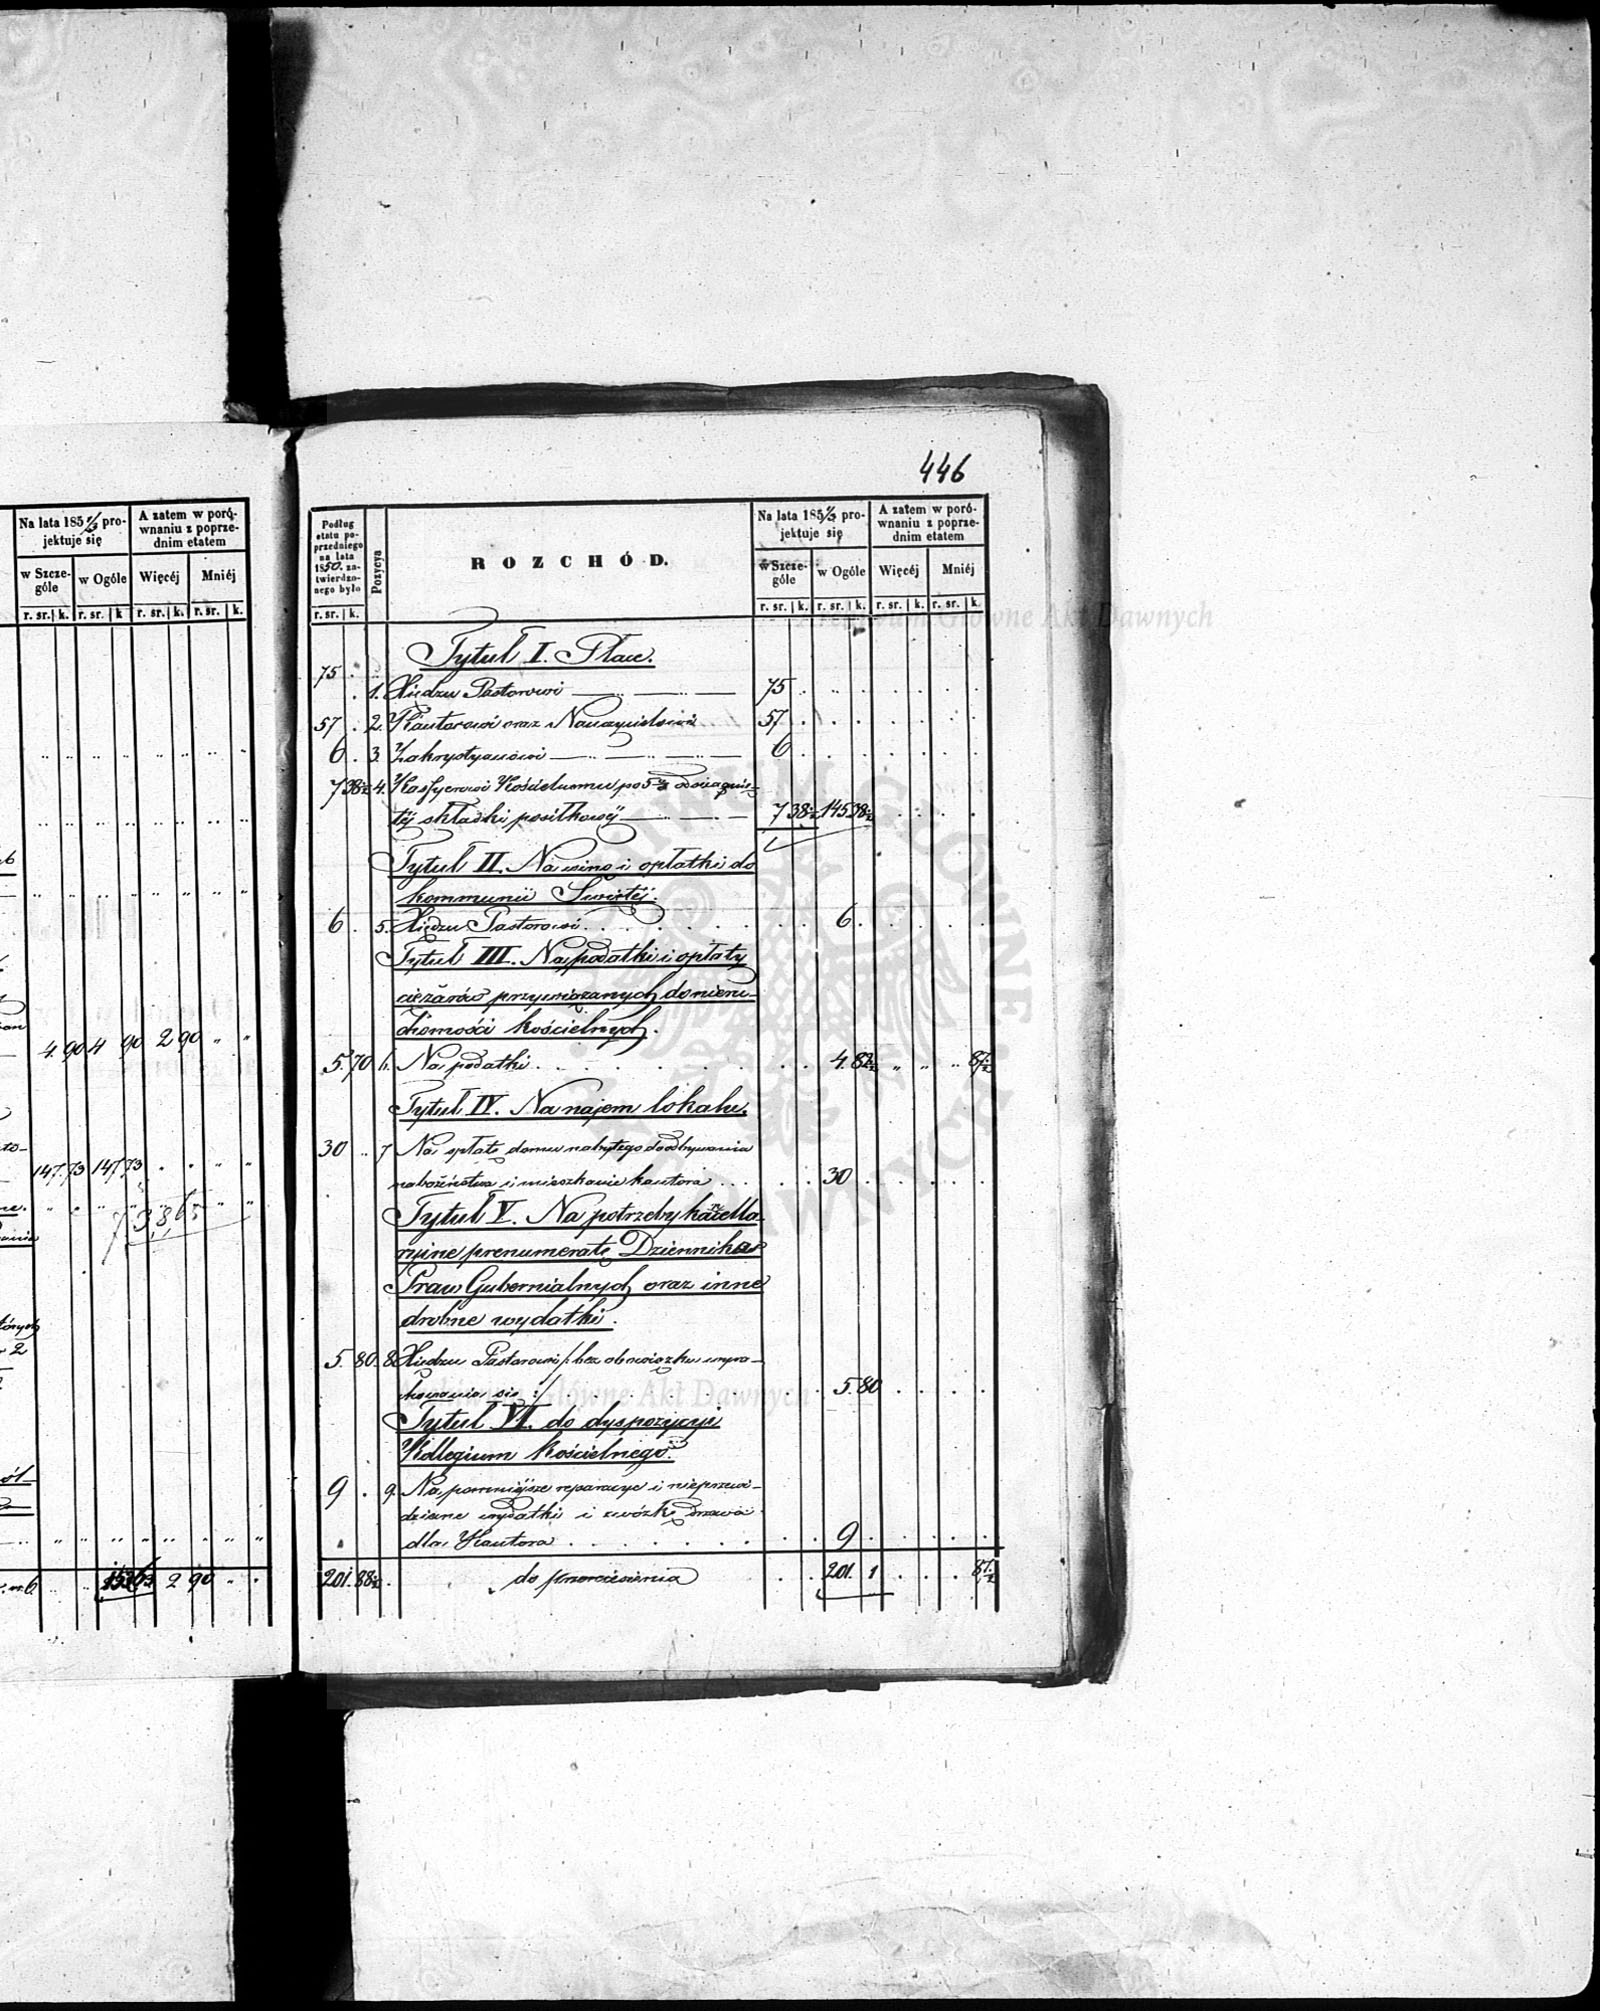 446
Na lata 185 1/3 pro-
jektuje się
A zatem w poró-
wnaniu z poprze-
dnim etatem
w Szcze-
góle
w Ogóle
Więcéj
Mniéj
r. sr. k. r. sr. k r. sr. k. r. sr. k.
4. 90 4 90 2 90
147. 73 147 73
2 90
Podług
etatu po-
przedniego
na lata
1850. za-
twierdzo-
nego było
Pozycya
ROZCHÓD.
Na lata 185 1/3 pro-
jektuje się
A zatem w poró-
wnaniu z poprze-
dnim etatem
w Szcze-
góle
w Ogóle
Więcéj
Mniéj
r. sr. k.
r. sr. k. r. sr. k. r. sr. k. r. sr. k.
Tytuł I. Płace.
75 . 1. Xiędzu Pastorowi 75
57 . 2. Kantorowi oraz Nauczycielowi 57
6 . 3. Zakrystyanowi 6
7 38½ 4. Kassyerowi Kościelnemu po 5
téj składki posiłkowéj 7 38½ 145 38½
Tytuł II. Na wino i opłatki do
kommunii Świętéj.
6 . 5. Xiędzu Pastorowi . . . 6
Tytuł III. Na podatki i opłaty
ciężarów przywiązanych do nieru-
chomości kościelnych.
5. 70 6. Na podatki . . . 4. 82½ 87½
Tytuł IV. Na najem lokalu.
30 7 Na spłatę domu nabytego do odbywania
nabożeństwa i mieszkanie kantora . . . 30
Tytuł V. Na potrzeby kancella-
ryine prenumeratę Dziennika
Praw Gubernialnych oraz inne
drobne wydatki.
5. 80. 8 Xiędzu Pastorowi /: bez obowiązku wyra-
chowania się :/ . . . 5. 80
Tytuł VI. do dyspozycyi
Kollegium Kościelnego.
9 . 9. Na pomniéjsze reparacye i nieprzewi-
dziane wydatki i zwózkę drzewa
dla Kantora . . . 9
201. 88½ do przeniesienia 201. 1 87½
Archiwum Główne Akt Dawnych
Archiwum Główne Akt Dawnych
ARCHIWUM GŁÓWNE AKT DAWNYCH